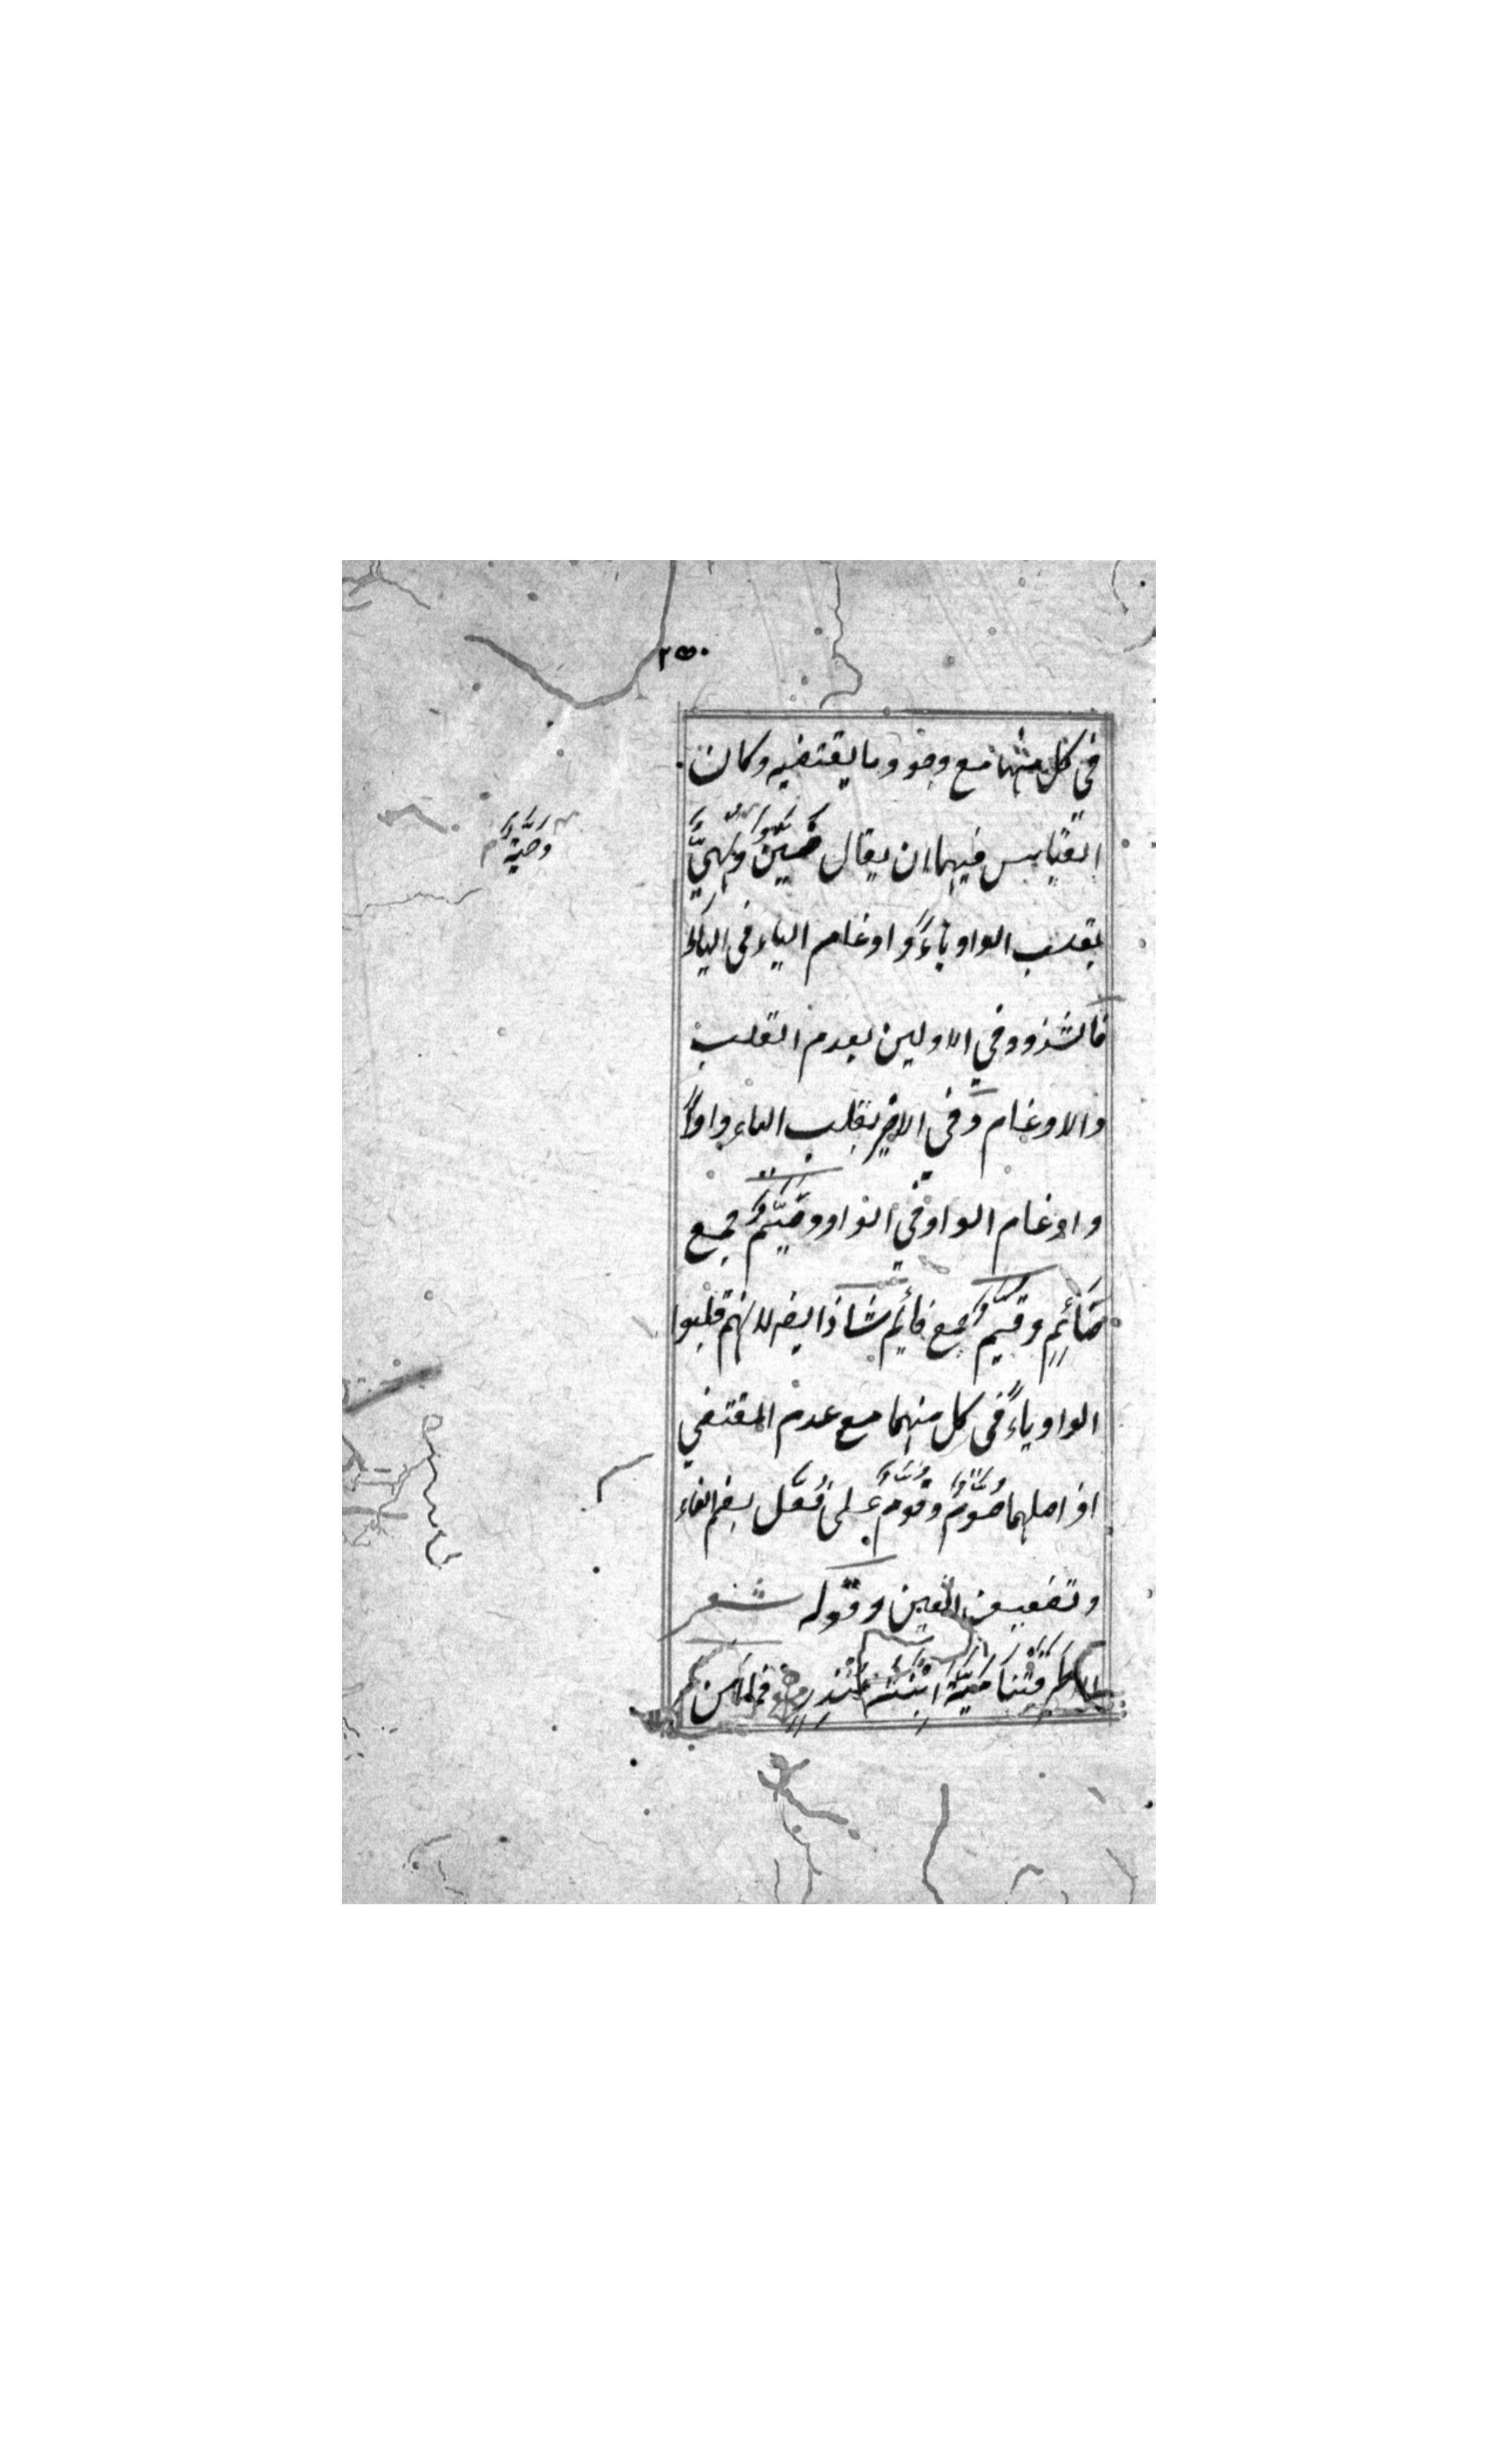 ٢٥٠
في كل منهما مع وجود ما يقتضيه وكان
القياس فيهما ان يقال ضَيَّنٌ ونَهِيٌّ
وحَيَّةٌ
بقلب الواو ياءً وادغام الياء في الياء
فالشذوذ في الاولين بعدم القلب
والادغام وفي الاخير بقلب الياء واوًا
وادغام الواو في الواو وصُيَّمٌ جمع
صَائِمٍ وقُيَّمٌ جمع قائِمٍ شَاذ ايضا لانهم قلبوا
الواو ياءً في كل منهما مع عدم المقتضي
اذ اصلهما صُوَّمٌ وقُوَّمٌ على فُعَّل بضم الفاء
وتضعيف العين وقوله شعر
الا طَرَقَتْنَا مَيَّةُ ابْنَةُ مُنْذِرٍ فما